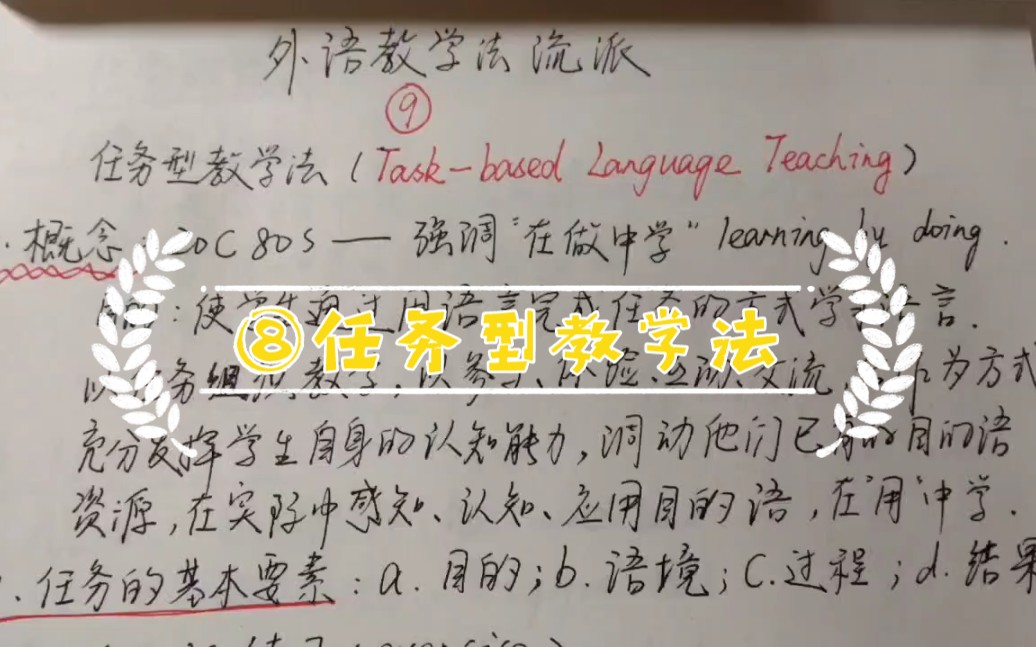 外语教学法流派
⑨
任务型教学法（Task-based Language Teaching）
概念：20C 80S — 强调"在做中学" learning by doing.
：使学生通过用语言完成任务的方式学习语言.
⑧任务型教学法
以任务组织教学，以参与、体验、互动、交流、为方式
充分发挥学生自身的认知能力，调动他们已有的目的语
资源，在实际中感知、认知、应用目的语，在"用"中学.
.任务的基本要素：a.目的；b.语境；C.过程；d.结果